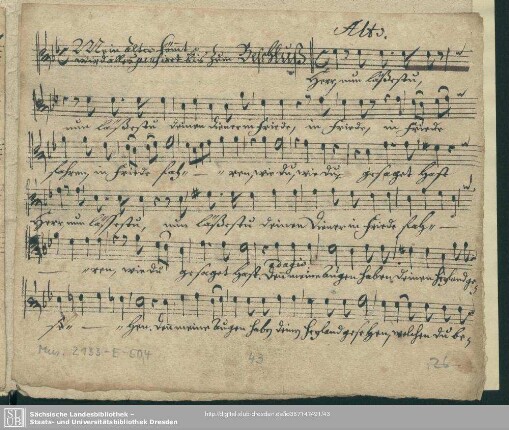 Alto.
Mein alter kömt
wird alles pausirt bis zum Beschluß
Herr, nun läßestu,
nun läßestu deinen diener in Friede, in Friede, in Friede
fahren, in Friede fah- - ren, wie du, wie du, gesaget hast
Herr nun läßestu, nun läßestu deinen Diener in Friede fah- -
- - ren, wie du gesaget hast. Den meine Augen haben deinen Heyland ge-
adagio
se- - - hen, den meine Augen haben deinen Heyland gesehen, welchen du be-
Mus. 2133-E-604
43
26
SLUB
Sächsische Landesbibliothek –
Staats- und Universitätsbibliothek Dresden